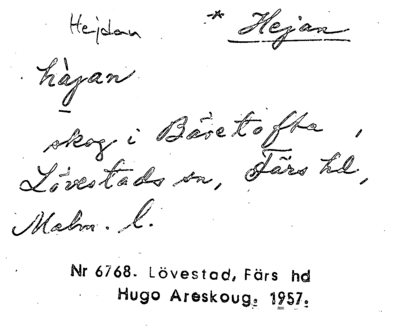 Hejdan * Hejan
hàjan
skog i Bävetofta,
Lövestads sn, Färs hd,
Malm. l.
Nr 6768. Lövestad, Färs hd
Hugo Areskoug. 1957.